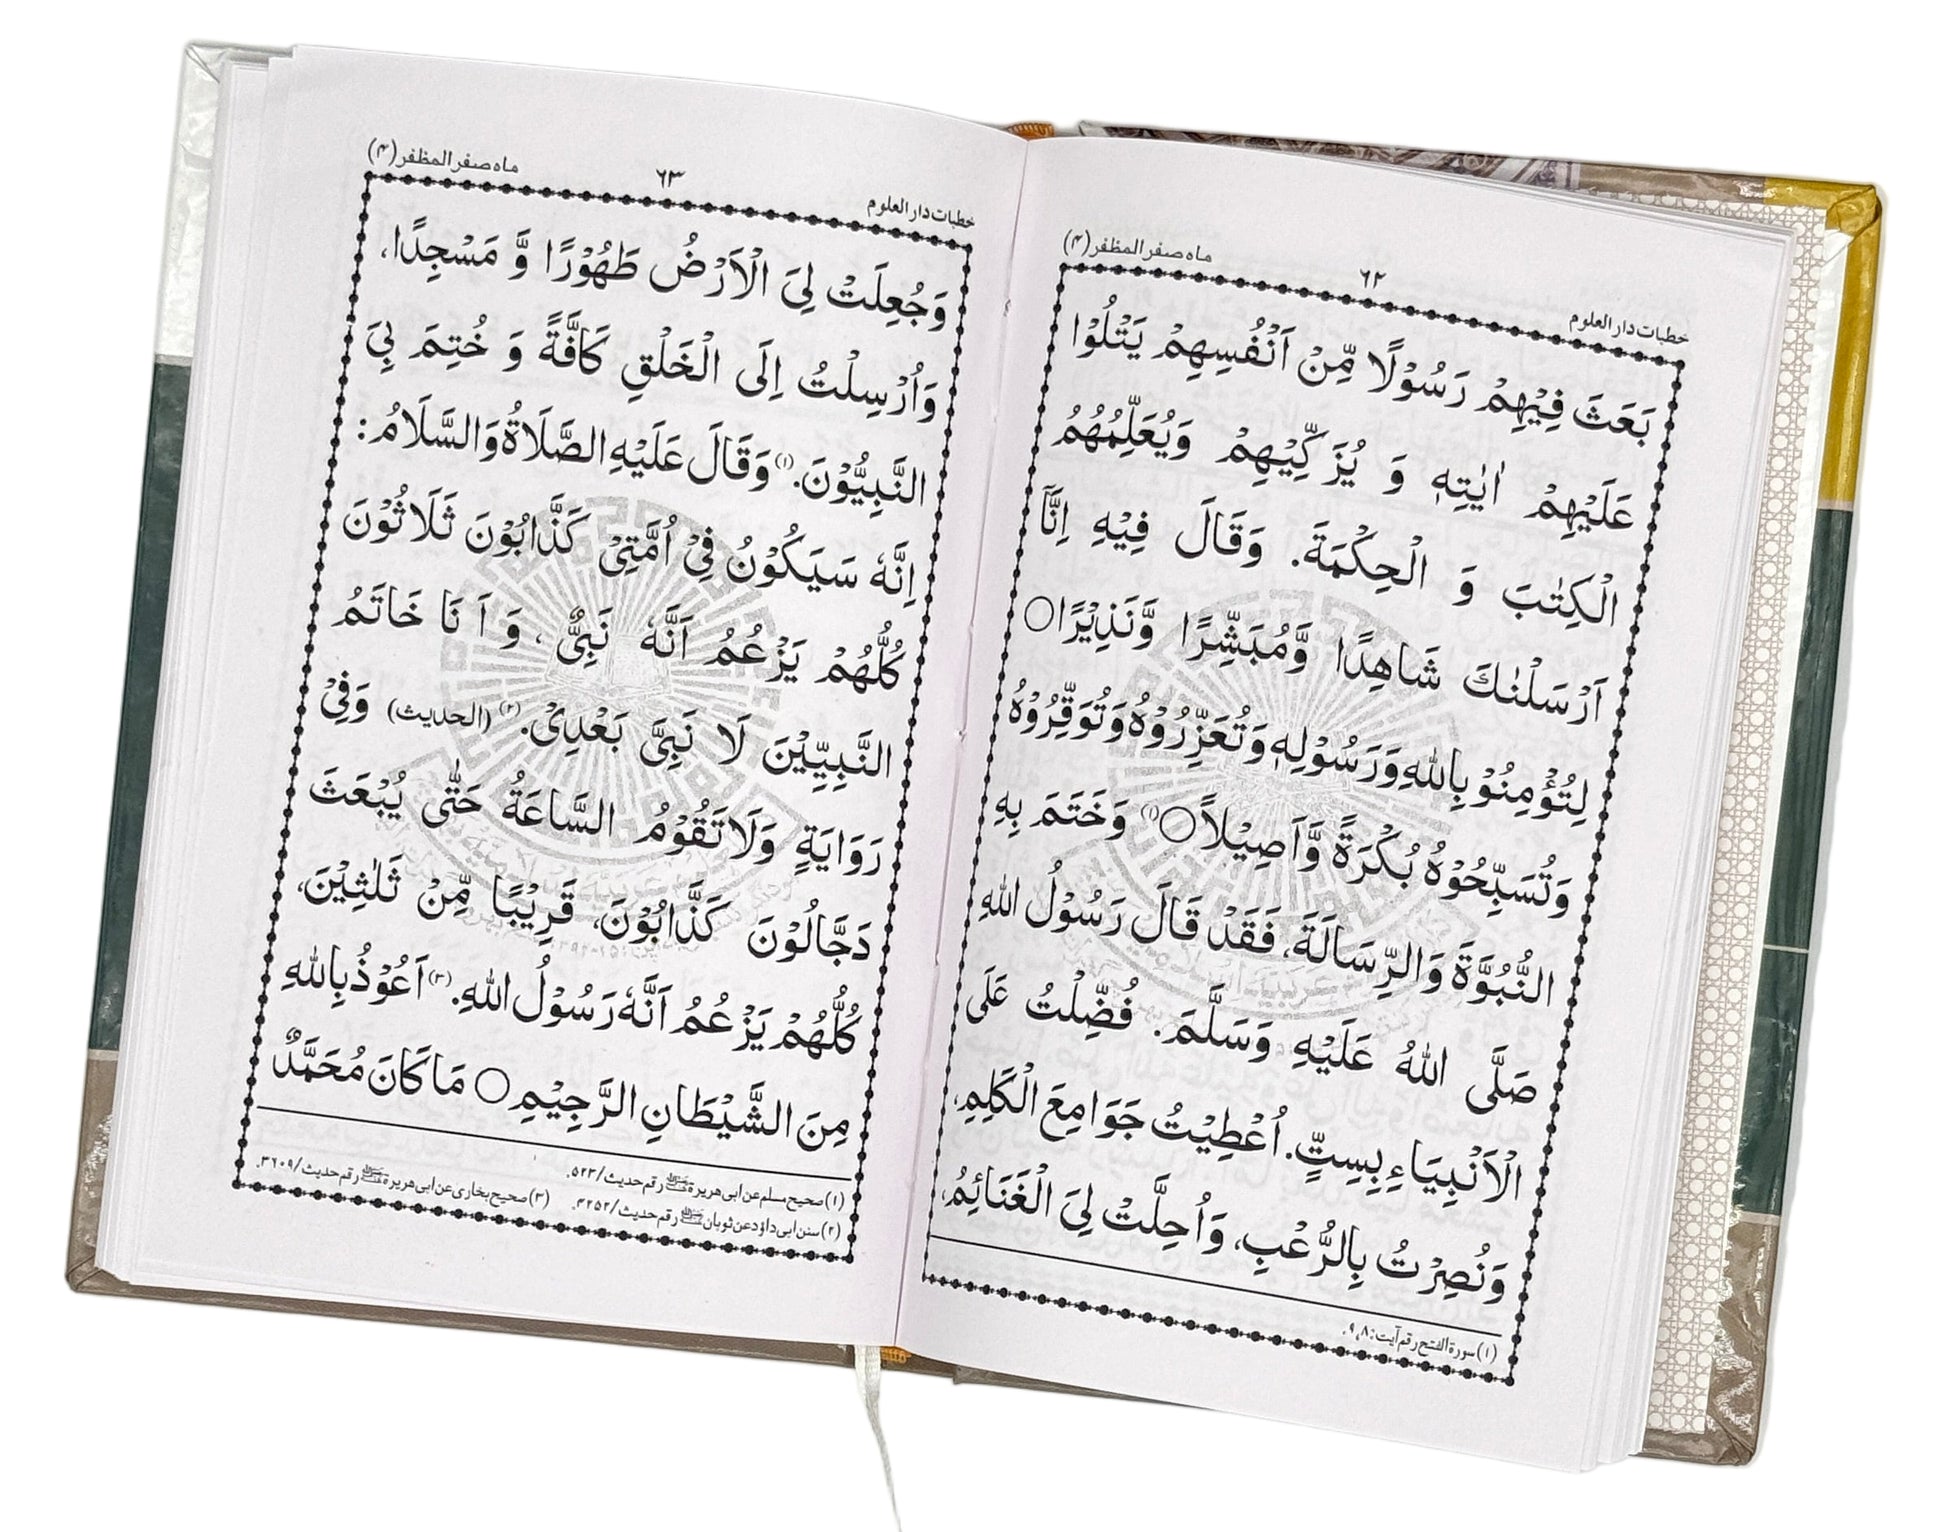 خطبات دار العلوم ۶۲ ماہ صفر المظفر (۴)
بَعَثَ فِيْهِمْ رَسُوْلًا مِّنْ اَنْفُسِهِمْ يَتْلُوْا
عَلَيْهِمْ اٰيٰتِهٖ وَ يُزَكِّيْهِمْ وَيُعَلِّمُهُمُ
الْكِتٰبَ وَ الْحِكْمَةَ. وَقَالَ فِيْهِ اِنَّآ
اَرْسَلْنٰكَ شَاهِدًا وَّمُبَشِّرًا وَّنَذِيْرًا○
لِتُؤْمِنُوْ بِاللهِ وَرَسُوْلِهٖ وَتُعَزِّرُوْهُ وَتُوَقِّرُوْهُ
وَتُسَبِّحُوْهُ بُكْرَةً وَّاَصِيْلاً○(۱) وَخَتَمَ بِهِ
النُّبُوَّةَ وَالرِّسَالَةَ، فَقَدْ قَالَ رَسُوْلُ اللهِ
صَلَّى اللهُ عَلَيْهِ وَسَلَّمَ. فُضِّلْتُ عَلَى
الْاَنْبِيَاءِ بِسِتٍّ. اُعْطِيْتُ جَوَامِعَ الْكَلِمِ،
وَنُصِرْتُ بِالرُّعْبِ، وَاُحِلَّتْ لِىَ الْغَنَائِمُ،
(۱) سورۃ الفتح رقم آیت: ۸، ۹.
خطبات دار العلوم ۶۳ ماہ صفر المظفر (۴)
وَجُعِلَتْ لِىَ الْاَرْضُ طَهُوْرًا وَّ مَسْجِدًا،
وَاُرْسِلْتُ اِلَى الْخَلْقِ كَافَّةً وَ خُتِمَ بِىَ
النَّبِيُّوْنَ.(۱) وَقَالَ عَلَيْهِ الصَّلَاةُ وَالسَّلَامُ:
اِنَّهٗ سَيَكُوْنُ فِىْ اُمَّتِىْ كَذَّابُوْنَ ثَلَاثُوْنَ
كُلُّهُمْ يَزْعُمُ اَنَّهٗ نَبِىٌّ، وَ اَ نَا خَاتَمُ
النَّبِيِّيْنَ لَا نَبِىَّ بَعْدِىْ.(۲) (الحدیث) وَفِىْ
رَوَايَةٍ وَلَا تَقُوْمُ السَّاعَةُ حَتّٰى يُبْعَثَ
دَجَّالُوْنَ كَذَّابُوْنَ، قَرِيْبًا مِّنْ ثَلٰثِيْنَ،
كُلُّهُمْ يَزْعُمُ اَنَّهٗ رَسُوْلُ اللهِ.(۳) اَعُوْذُ بِاللهِ
مِنَ الشَّيْطَانِ الرَّجِيْمِ○ مَا كَانَ مُحَمَّدٌ
(۱) صحیح مسلم عن ابی ھریرۃ رقم حدیث/۵۲۳.
(۲) سنن ابی داؤد عن ثوبان رقم حدیث/۴۲۵۲. (۳) صحیح بخاری عن ابی ھریرۃ رقم حدیث/۳۶۰۹.